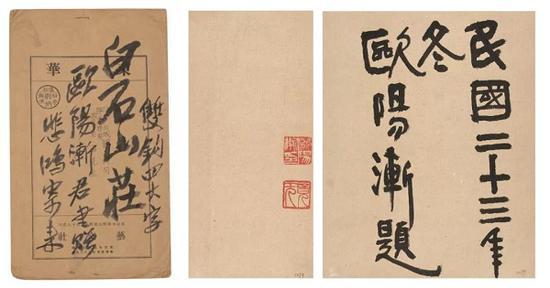 雙鉤四大字
白石山莊
歐陽漸君書贈
悲鴻
華
民國二十三年
冬
歐陽漸題